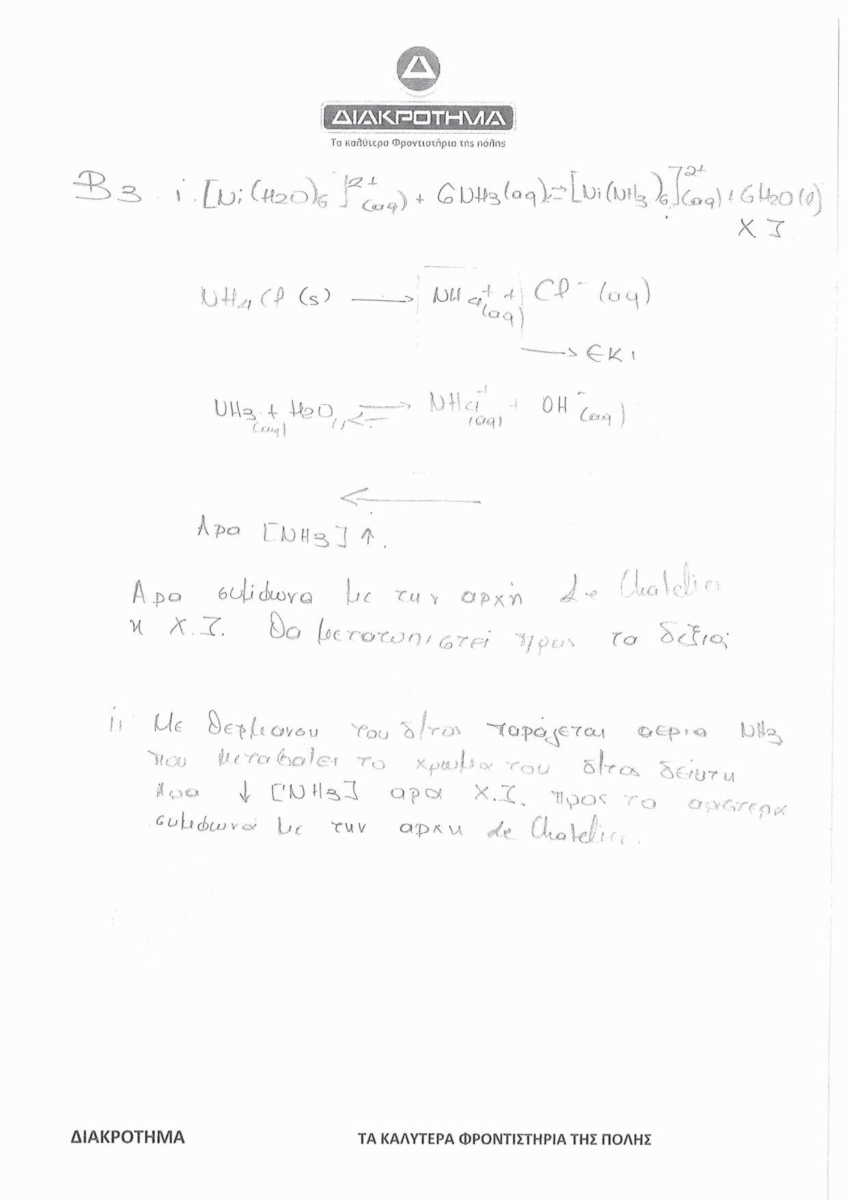 ΔΙΑΚΡΟΤΗΜΑ
Τα καλύτερα Φροντιστήρια της πόλης
Β3 i. [Ni(H2O)6]2+(aq) + 6NH3(aq) ⇌ [Ni(NH3)6]2+(aq) + 6H2O(l)
Χ Ι
NH4Cl (s) → NH4+(aq) + Cl- (aq)
→ ΕΚΙ
NH3(aq) + H2O ⇌ NH4+(aq) + OH-(aq)
←
Αρα [NH3] ↑.
Αρα συμφωνα με την αρχή Le Chatelier
η Χ.Ι. θα μετατοπιστεί προς τα δεξιά
ii Με θερμανση του δ/τος παράγεται αερια NH3
που μεταβαλει το χρωμα του δ/τος δείκτη
Αρα ↓ [NH3] αρα Χ.Ι. προς τα αριστερα
συμφωνα με την αρχη Le Chatelier.
ΔΙΑΚΡΟΤΗΜΑ ΤΑ ΚΑΛΥΤΕΡΑ ΦΡΟΝΤΙΣΤΗΡΙΑ ΤΗΣ ΠΟΛΗΣ